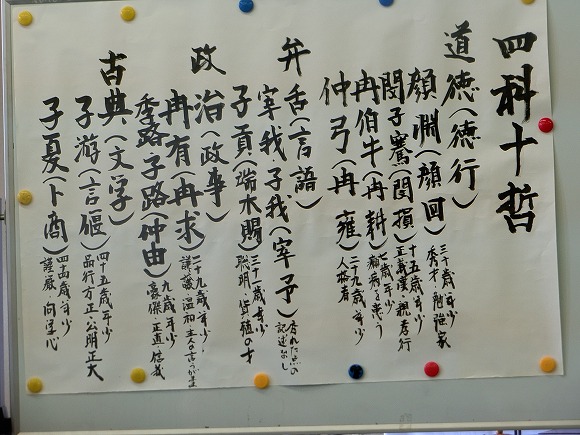 四科十哲
道徳(徳行)
顔淵(顔回)三十歳年少
秀才・勉強家
閔子騫(閔損)十五歳年少
正義漢・親孝行
冉伯牛(冉耕)七歳年少
癩病を患う
仲弓(冉雍)二十九歳年少
人格者
弁舌(言語)
宰我・子我(宰予)
記述なし
子貢(端木賜)三十一歳年少
聡明・貨殖の才
政治(政事)
冉有(冉求)二十九歳年少
謙譲・温和・主人の言うがまま
季路・子路(仲由)九歳年少
豪傑・正直・信義
古典(文学)
子游(言偃)四十五歳年少
品行方正・公明正大
子夏(卜商)四四歳年少
謹厳・向学心